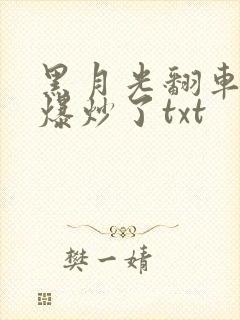 黑月光翻車
爆炒了txt
樊一婧